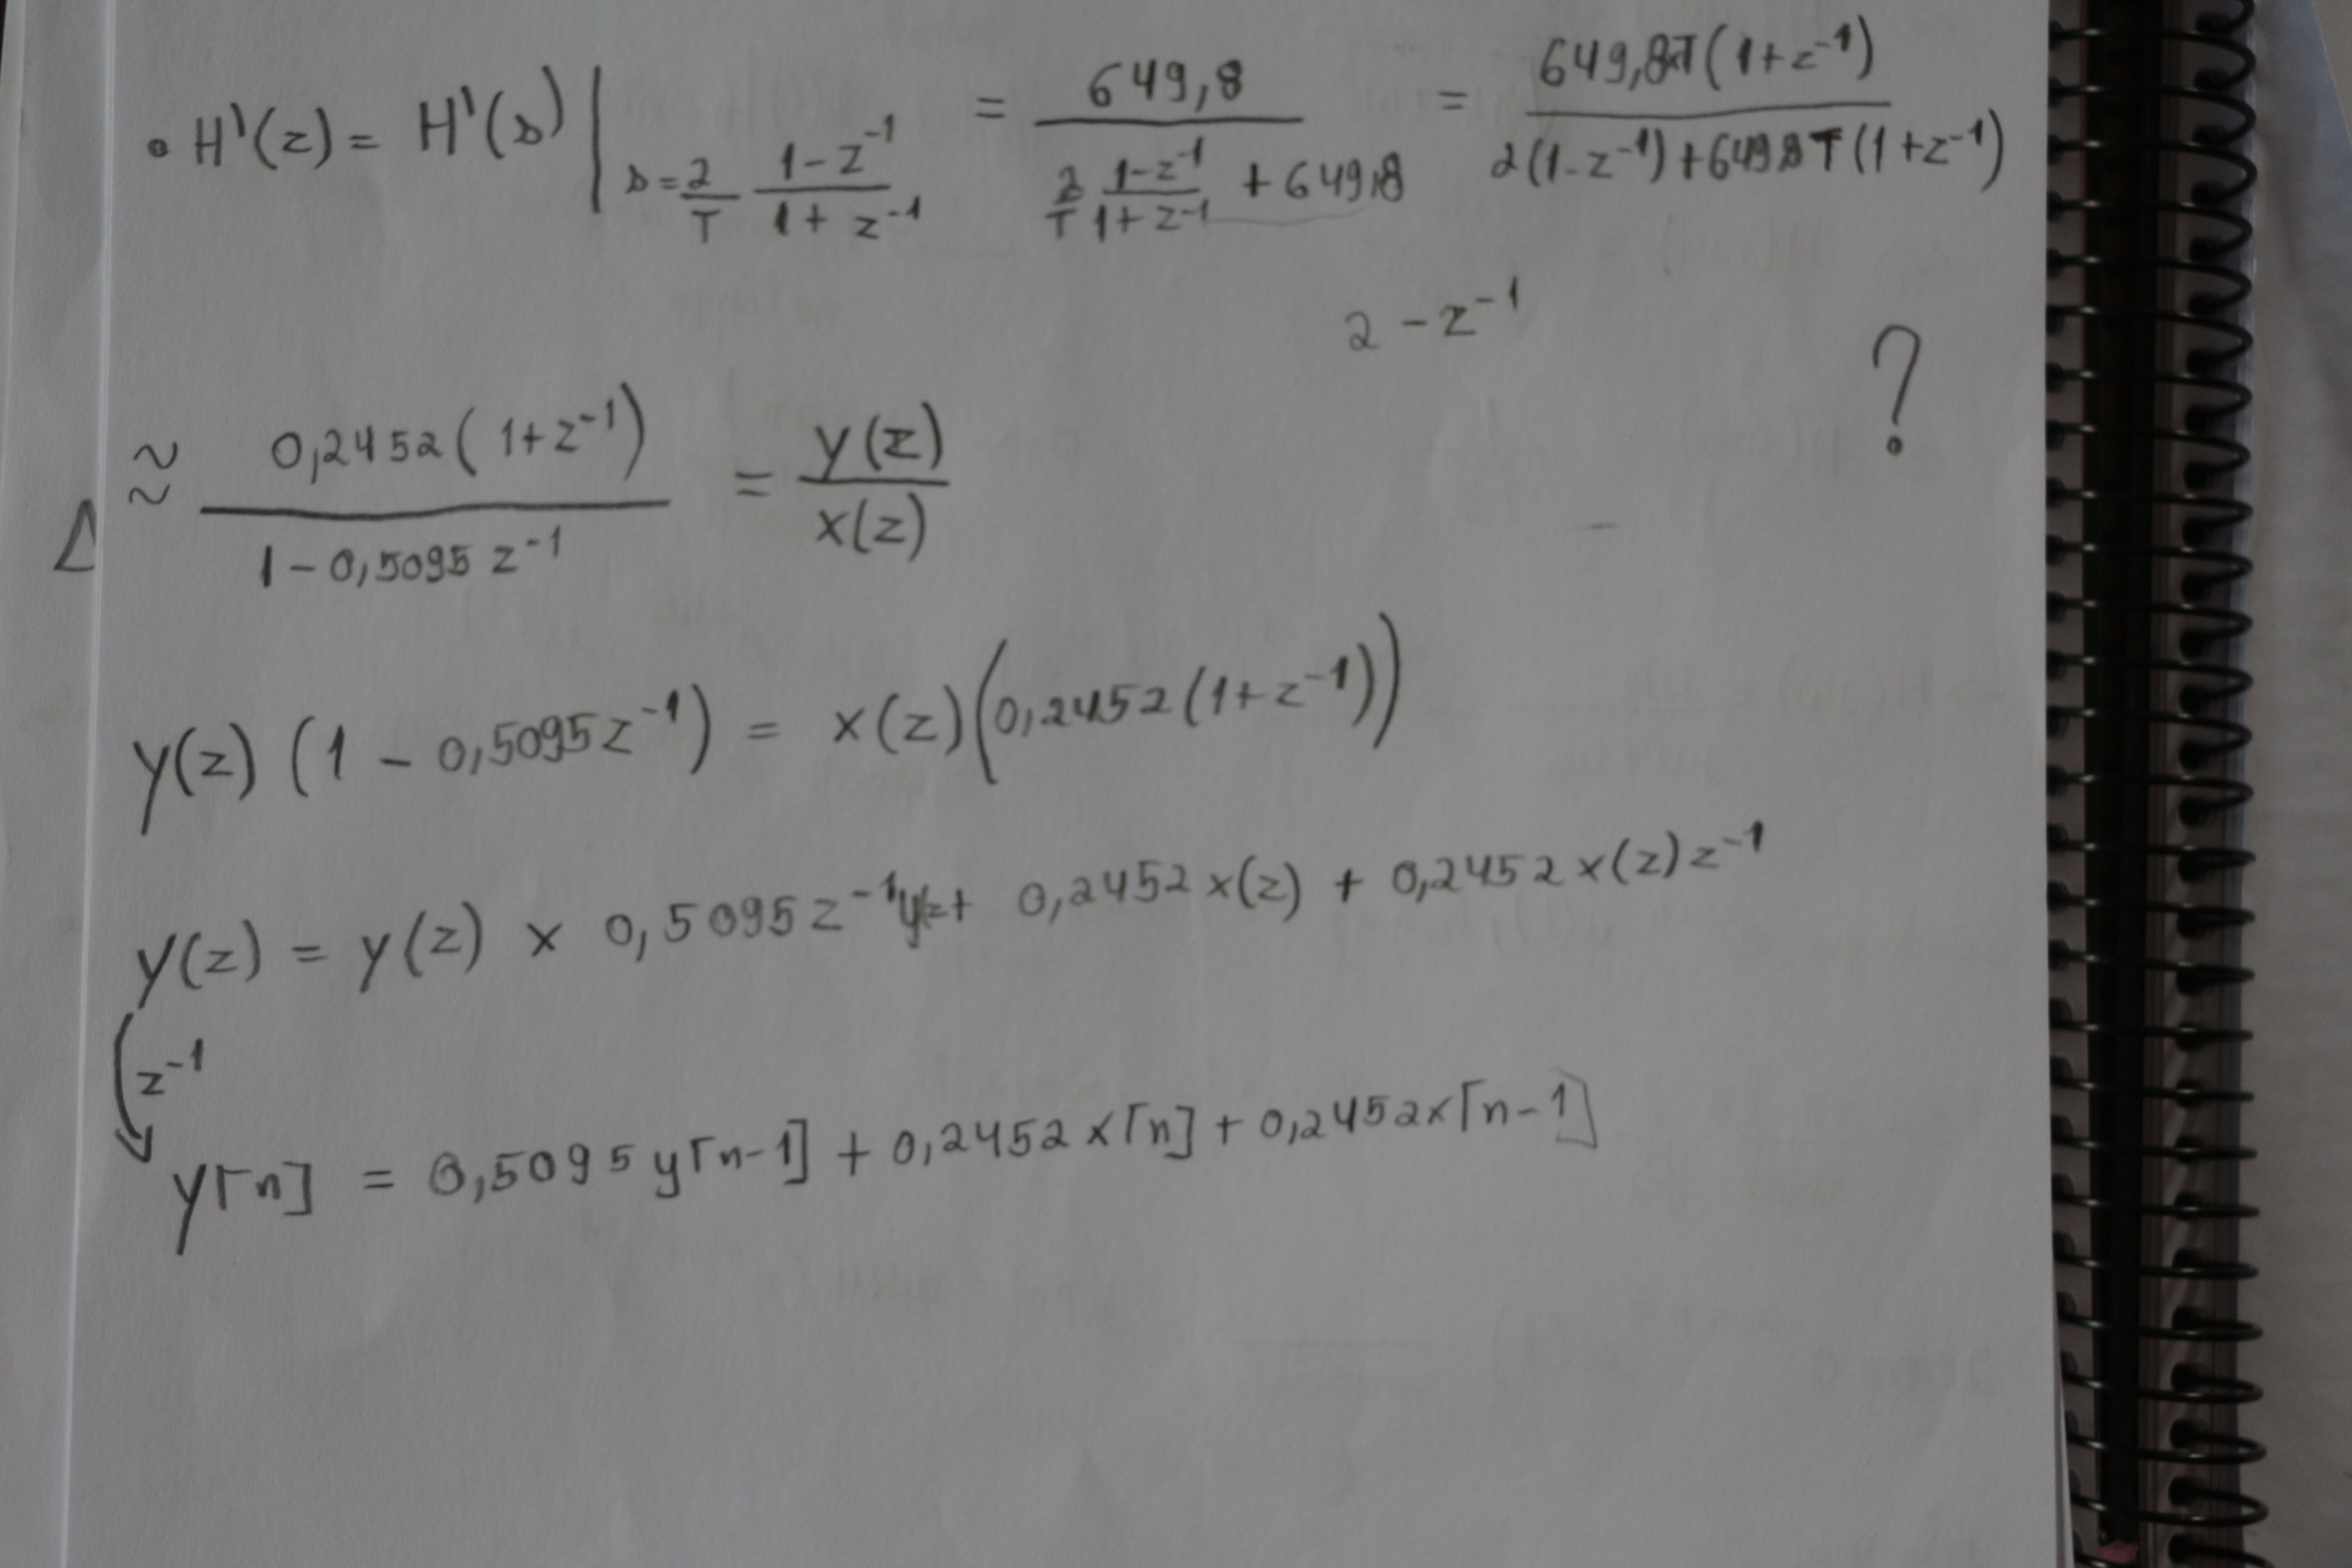 • H'(z) = H'(s) | s = 2/T (1 - z⁻¹)/(1 + z⁻¹) = 649,8 / (2/T (1 - z⁻¹)/(1 + z⁻¹) + 649,8) = 649,8T(1 + z⁻¹) / (2(1 - z⁻¹) + 649,8T(1 + z⁻¹))
2 - z⁻¹
?
≈ 0,2452(1 + z⁻¹) / (1 - 0,5095 z⁻¹) = y(z) / x(z)
y(z) (1 - 0,5095z⁻¹) = x(z)(0,2452(1 + z⁻¹))
y(z) = y(z) x 0,5095z⁻¹ + 0,2452x(z) + 0,2452x(z)z⁻¹
z⁻¹
y[n] = 0,5095y[n-1] + 0,2452x[n] + 0,2452x[n-1]